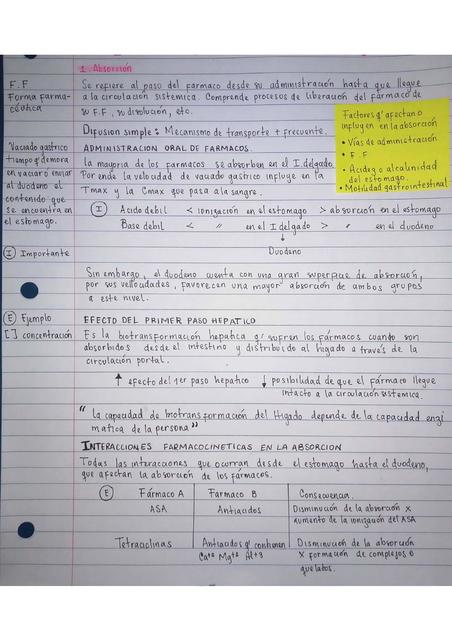 1. Absorción
F.F
Forma farma-
céutica
Se refiere al paso del farmaco desde su administración hasta que llegue
a la circulación sistemica. Comprende procesos de liberación del fármaco de
su F.F, su disolución, etc.
Difusion simple: Mecanismo de transporte + frecuente.
Factores q' afectan o
influyen en la absorción
• Vías de administración
• F.F
• Acidez o alcalinidad
del estomago.
• Motilidad gastrointestinal
Vaciado gastrico
tiempo q' demora
en vaciar o enviar
al duodeno el
contenido que
se encuentra en
el estomago.
ADMINISTRACION ORAL DE FARMACOS.
La mayoria de los farmacos se absorben en el I.delgado
Por ende la velocidad de vaciado gastrico influye en la
Tmax y la Cmax que pasa a la sangre.
(I) Acido debil < ionización en el estomago > absorción en el estomago
Base debil < " en el I delgado > " en el duodeno
↓
Duodeno
(I) Importante
Sin embargo, el duodeno cuenta con una gran superfice de absorción,
por sus vellocidades, favorecen una mayor absorción de ambos grupos
a este nivel.
(E) Ejemplo
[ ] concentración
EFECTO DEL PRIMER PASO HEPATICO
Es la biotransformación hepatica q' sufren los fármacos cuando son
absorbidos desde el intestino y distribuido al higado a través de la
circulación portal.
↑ efecto del 1er paso hepatico ↓ posibilidad de que el fármaco llegue
intacto a la circulación sistemica.
"La capacidad de biotransformación del Higado depende de la capacidad enzi
matica de la persona"
INTERACCIONES FARMACOCINETICAS EN LA ABSORCION
Todas las interacciones que ocurran desde el estomago hasta el duodeno,
que afectan la absorción de los fármacos.
(E) Fármaco A Farmaco B Consecuencia.
ASA Antiacidos Disminución de la absorción x
aumento de la ionización del ASA
Tetraciclinas Antiacidos q' contienen Disminución de la absorción
Ca+2 Mg+2 Al+3 x formación de complejos o
quelatos.